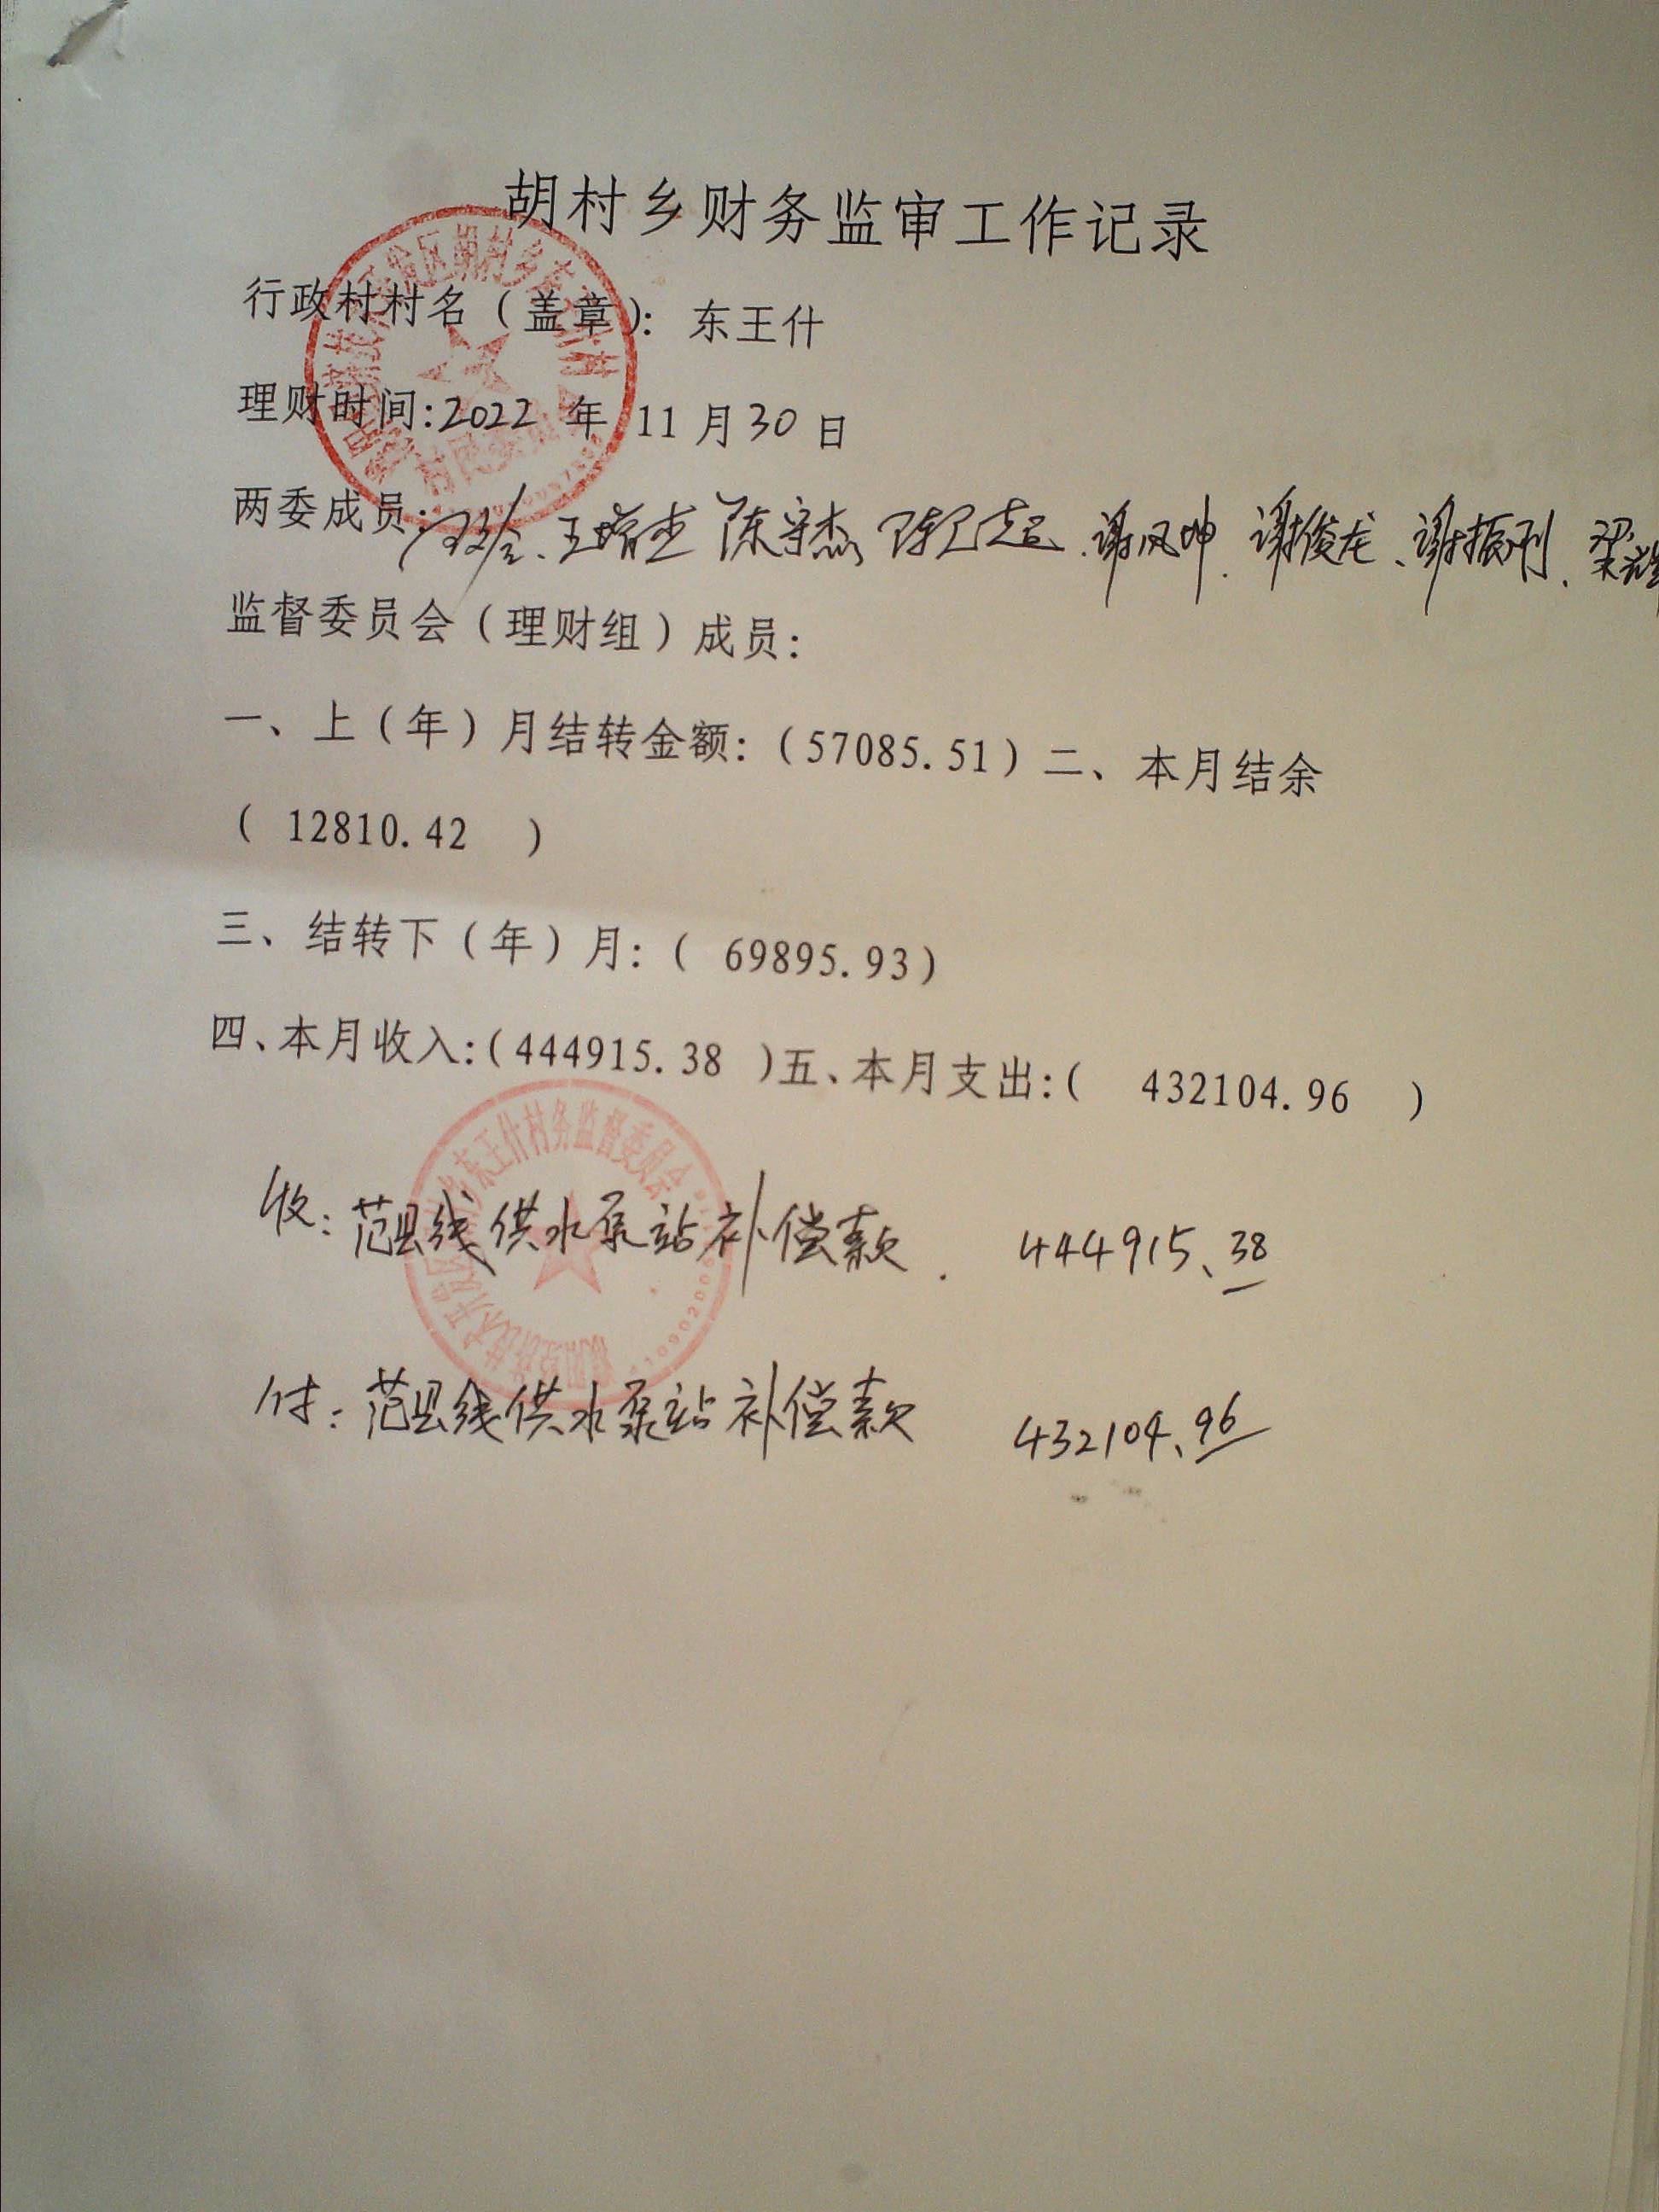 胡村乡财务监审工作记录
行政村村名（盖章）：东王什
理财时间：2022 年 11 月 30 日
两委成员： 王增杰 陈守杰 陈卫超、谢凤坤、谢俊龙、谢振刚、梁
监督委员会（理财组）成员：
一、上（年）月结转金额：（57085.51）二、本月结余
（ 12810.42 ）
三、结转下（年）月：（ 69895.93）
四、本月收入：（444915.38 ）五、本月支出：（ 432104.96 ）
东王什村务监督委员会
收：范县线供水泵站补偿款． 444915、38
付：范县线供水泵站补偿款 432104、96